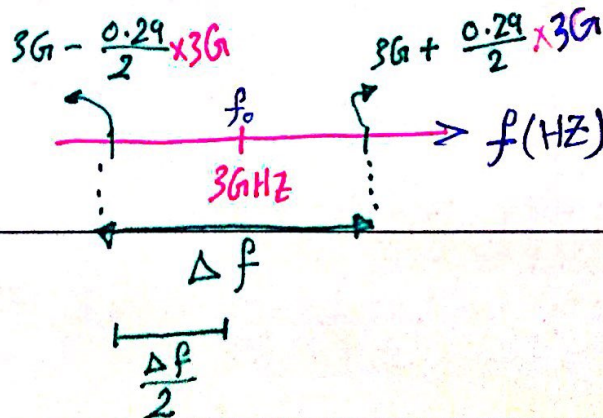 3G - 0.29/2 × 3G
3G + 0.29/2 × 3G
f₀
f(HZ)
3GHZ
Δf
Δf/2